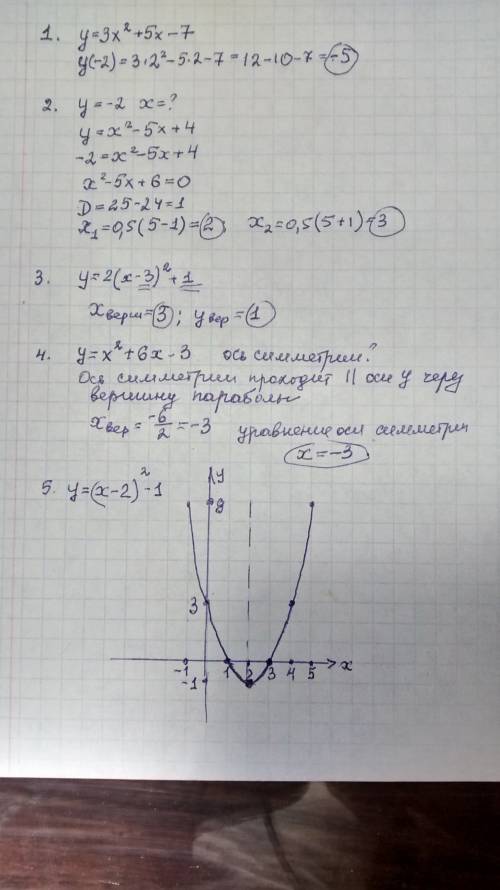 1. y=3x²+5x-7
y(-2)=3·2²-5·2-7=12-10-7=-5
2. y=-2 x=?
y=x²-5x+4
-2=x²-5x+4
x²-5x+6=0
D=25-24=1
x₁=0,5(5-1)=2 x₂=0,5(5+1)=3
3. y=2(x-3)²+1
xверш=3; yвер=1
4. y=x²+6x-3 ось симметрии?
Ось симметрии проходит || оси y через
вершину параболы
xвер=-6/2=-3 уравнение оси симметрии
x=-3
5. y=(x-2)²-1
y
8
3
-1 1 2 3 4 5 x
-1